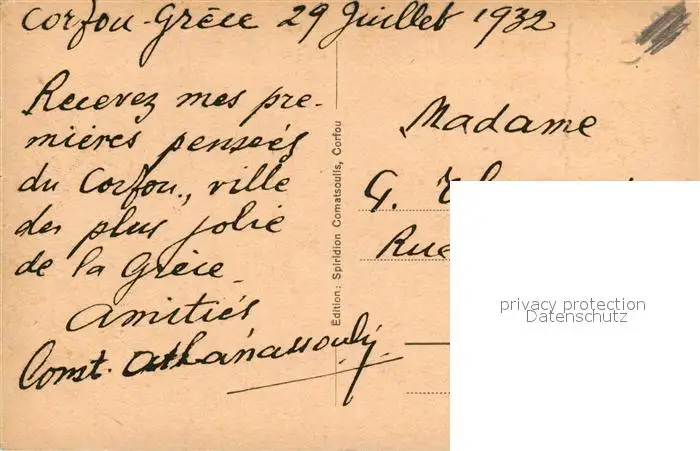 Corfou-Grèce 29 Juillet 1932
Recevez mes pre-
mières pensées
du Corfou., ville
des plus jolie
de la Grèce
Amitiés
Const. Athanassouly
Édition: Spiridion Comatsoulis, Corfou
Madame
G.
Rue
privacy protection
Datenschutz